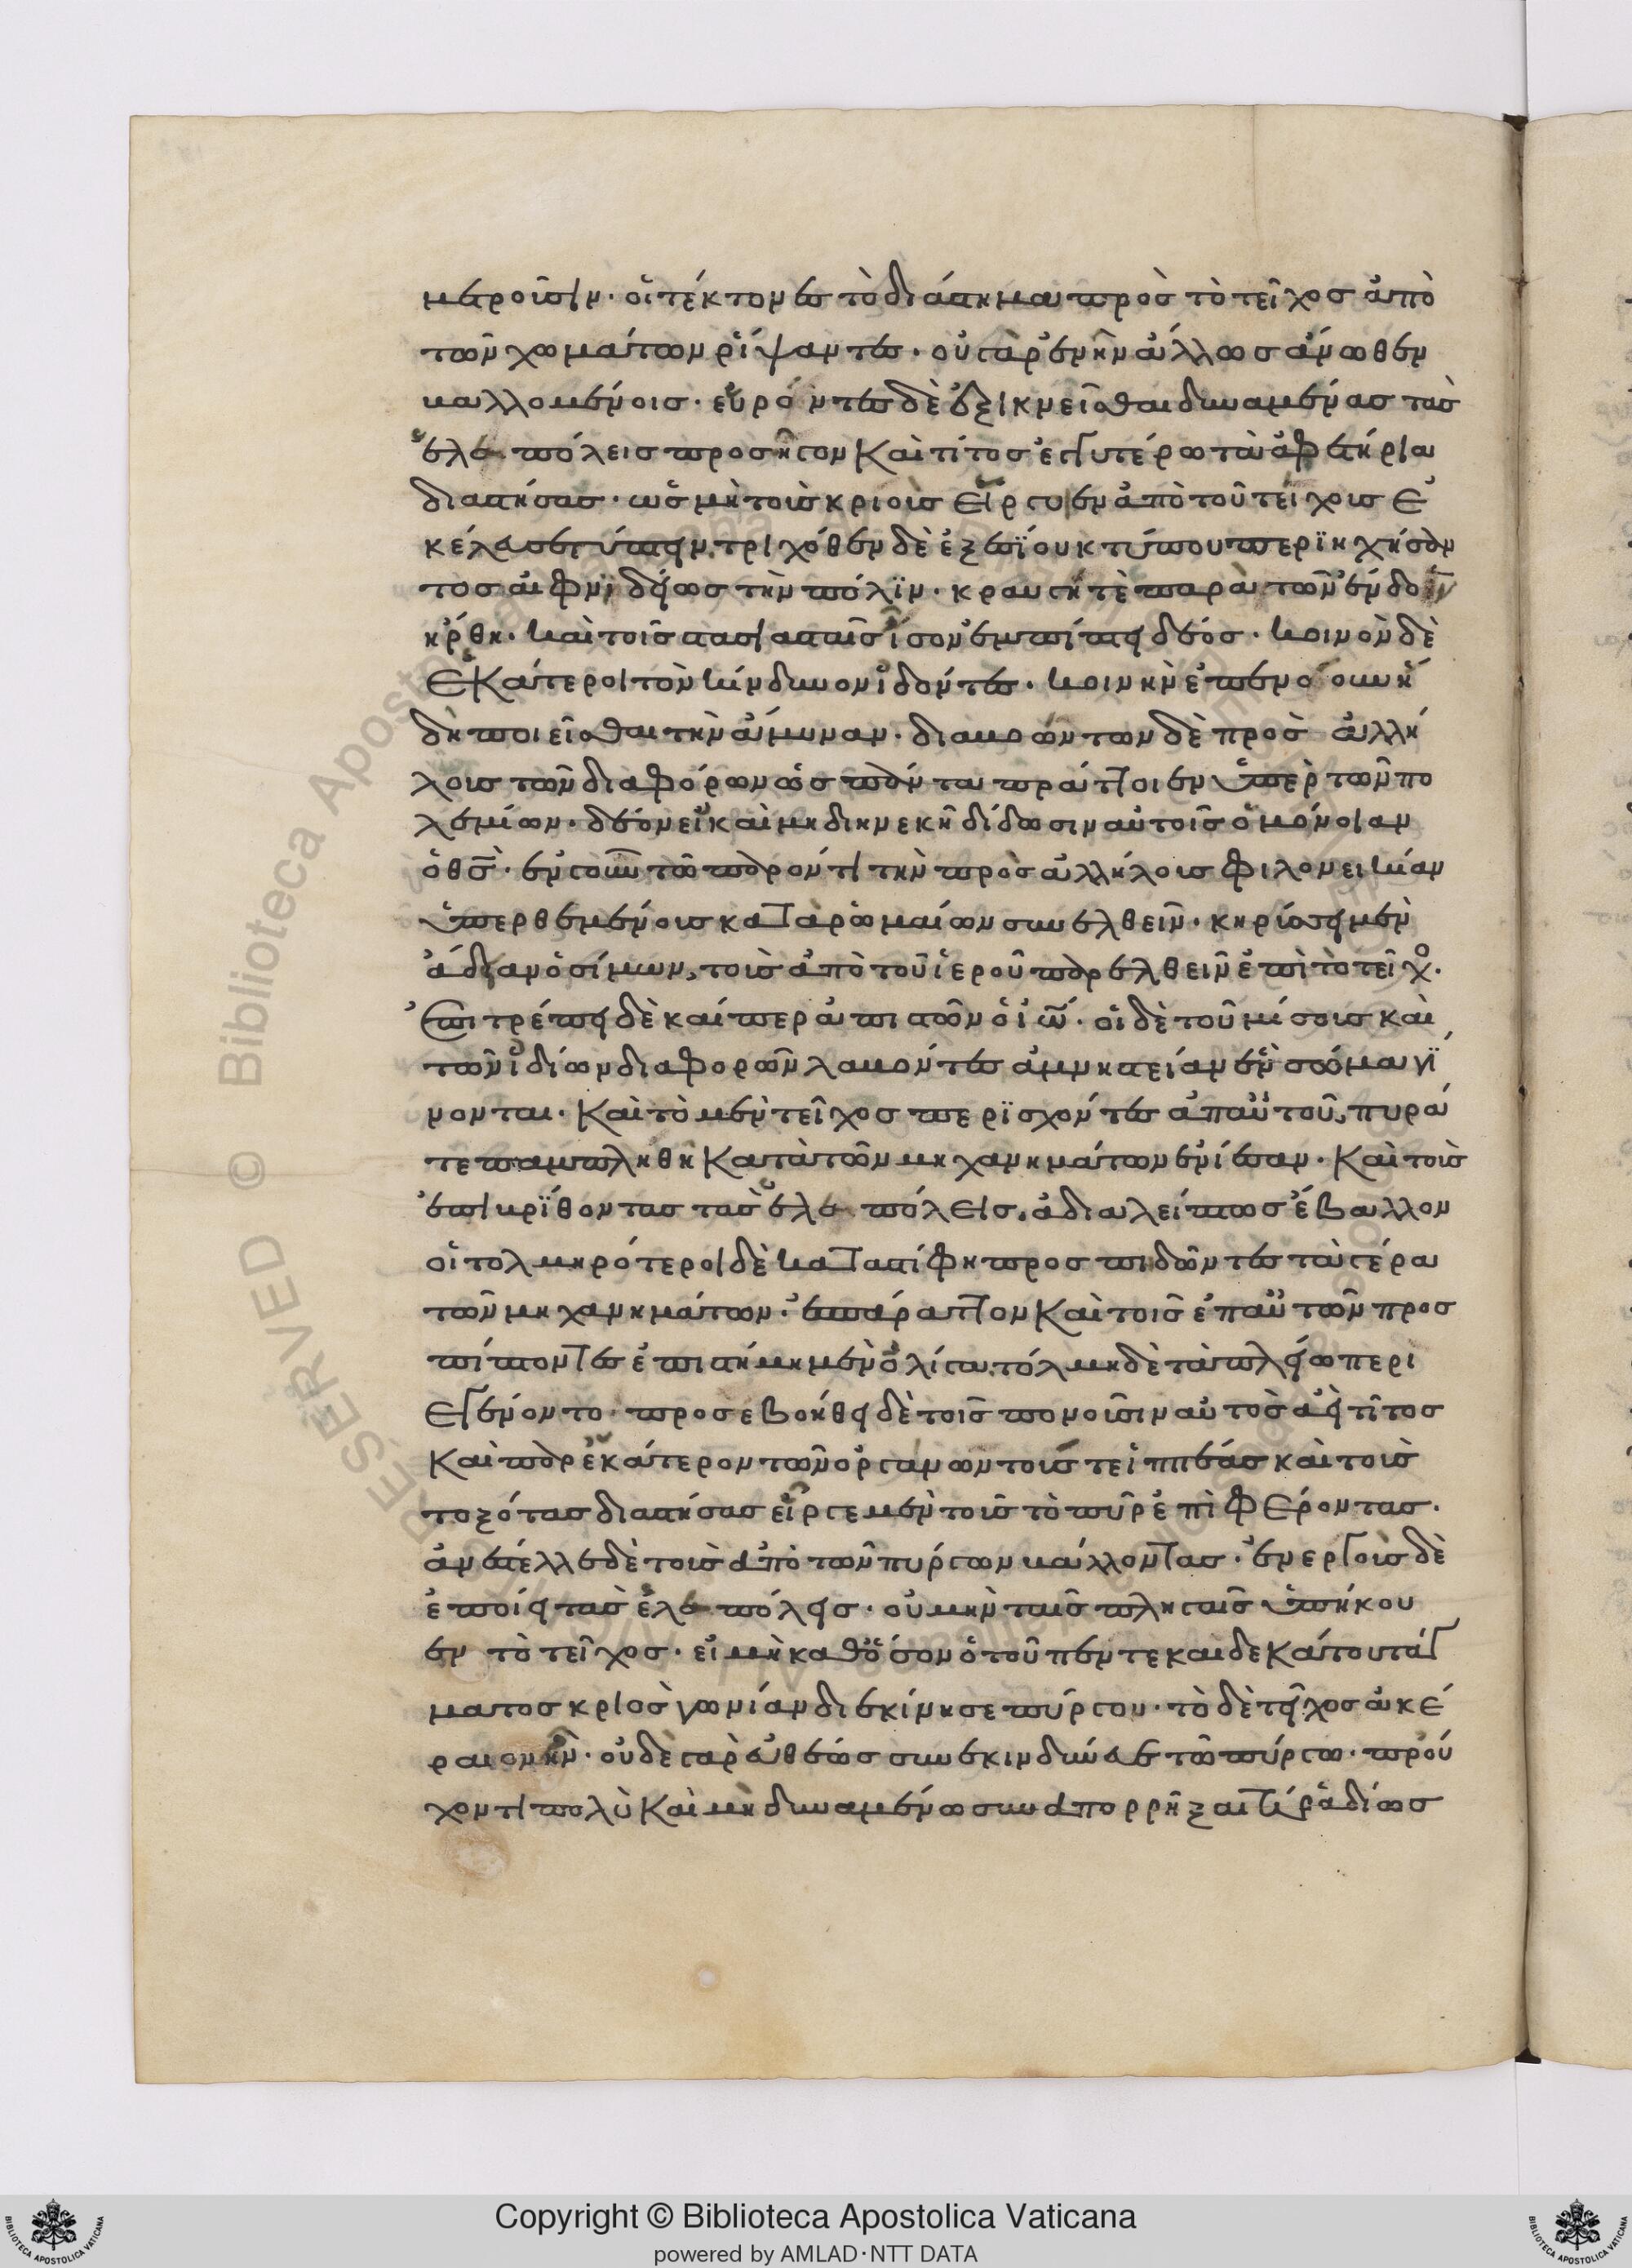 μετροῦσιν· οἱ τέκτονες τὸ διάστημα πρὸς τὸ τεῖχος ἀπὸ
τῶν χωμάτων ῥίψαντες· οὐ γὰρ ἐνῆν ἄλλως ἄνωθεν
βαλλομένοις· εὑρόντες δὲ ἐξικνεῖσθαι δυναμένας τὰς
ἑλεπόλεις προσῆγον καὶ τίτος ἐγγυτέρω τὰ ἀφετήρια
διαστήσας· ὡς μὴ τοὺς κριοὺς εἴργοιεν ἀπὸ τοῦ τείχους ἐ
κέλευσε τύπτειν, τριχόθεν δὲ ἐξαισίου κτύπου περιηχήσαν
τος αἰφνιδίως τὴν πόλιν· κραυγή τὲ παρὰ τῶν ἔνδον
ἤρθη· καὶ τοῖς στασιασταῖς ἴσον ἐμπίπτει δέος· κοινὸν δὲ
ἑκάτεροι τὸν κίνδυνον ἰδόντες· κοινὴν ἐπενόουν ἤ
δη ποιεῖσθαι τὴν ἄμυναν· διαβοώντων δὲ πρὸς ἀλλή
λους τῶν διαφόρων ὡς πάντα πράττοιεν ὑπὲρ τῶν πο
λεμίων· δέον εἰ καὶ μὴ διηνεκῆ δίδωσιν αὐτοῖς ὁμόνοιαν
ὁ θς· ἐν γοῦν τῶ παρόντι τὴν πρὸς ἀλλήλους φιλονεικίαν
ὑπερθεμένους κατὰ ῥωμαίων συνελθεῖν· κηρύσσει μὲν
ἄδειαν ὁ σίμων, τοῖς ἀπὸ τοῦ ἱεροῦ παρελθεῖν ἐπὶ τὸ τεῖχος·
ἐπιτρέπει δὲ καίπερ ἀπιστῶν ὁ ἰω· οἱ δὲ τοῦ μίσους καὶ
τῶν ἰδίων διαφορῶν λαβόντες ἀμνηστείαν ἓν σῶμα γί
νονται· καὶ τὸ μὲν τεῖχος περισχόντες ἀπ αὐτοῦ, πυρά
τε παμπληθῆ κατὰ τῶν μηχανημάτων ἐνίεσαν· καὶ τοὺς
ἐπιβρίθοντας τὰς ἑλεπόλεις, ἀδιαλείπτως ἔβαλλον
οἱ τολμηρότεροι δὲ κατὰ στίφη προσπιδῶντες τὰ γέρα
τῶν μηχανημάτων· ἐσπάραττον καὶ τοῖς ἐπ αὐτῶν προσ
πίπτοντες ἐπιστήμη μὲν ὀλίγα, τόλμη δὲ τὰ πλείω περι
εγένοντο· προσεβοήθει δὲ τοῖς πονοῦσιν αὐτὸς ἀεὶ τίτος
καὶ παρ ἑκάτερον τῶν ὀργάνων τούς τε ἱππέας καὶ τοὺς
τοξότας διαστήσας εἶργε μὲν τοὺς τὸ πῦρ ἐπιφέροντας·
ἀνέστελλε δὲ τοὺς ἀπὸ τῶν πύργων βάλλοντας· ἐνεργοὺς δὲ
ἐποίει τὰς ἑλεπόλεις· οὐ μὴν ταῖς πληγαῖς ὑπήκου
εν τὸ τεῖχος· εἰ μὴ καθόσον ὁ τοῦ πέντε καὶ δεκάτου τάγ
ματος κριὸς γωνίαν διεκίνησε πύργου· τὸ δὲ τεῖχος ἀκέ
ραιον ἦν· οὐδε γὰρ εὐθέως συνεκινδύνευε τῶ πύργω· πρού
χοντι πολὺ καὶ μὴ δυναμένω συναπορρῆξαί τι ῥαδίως